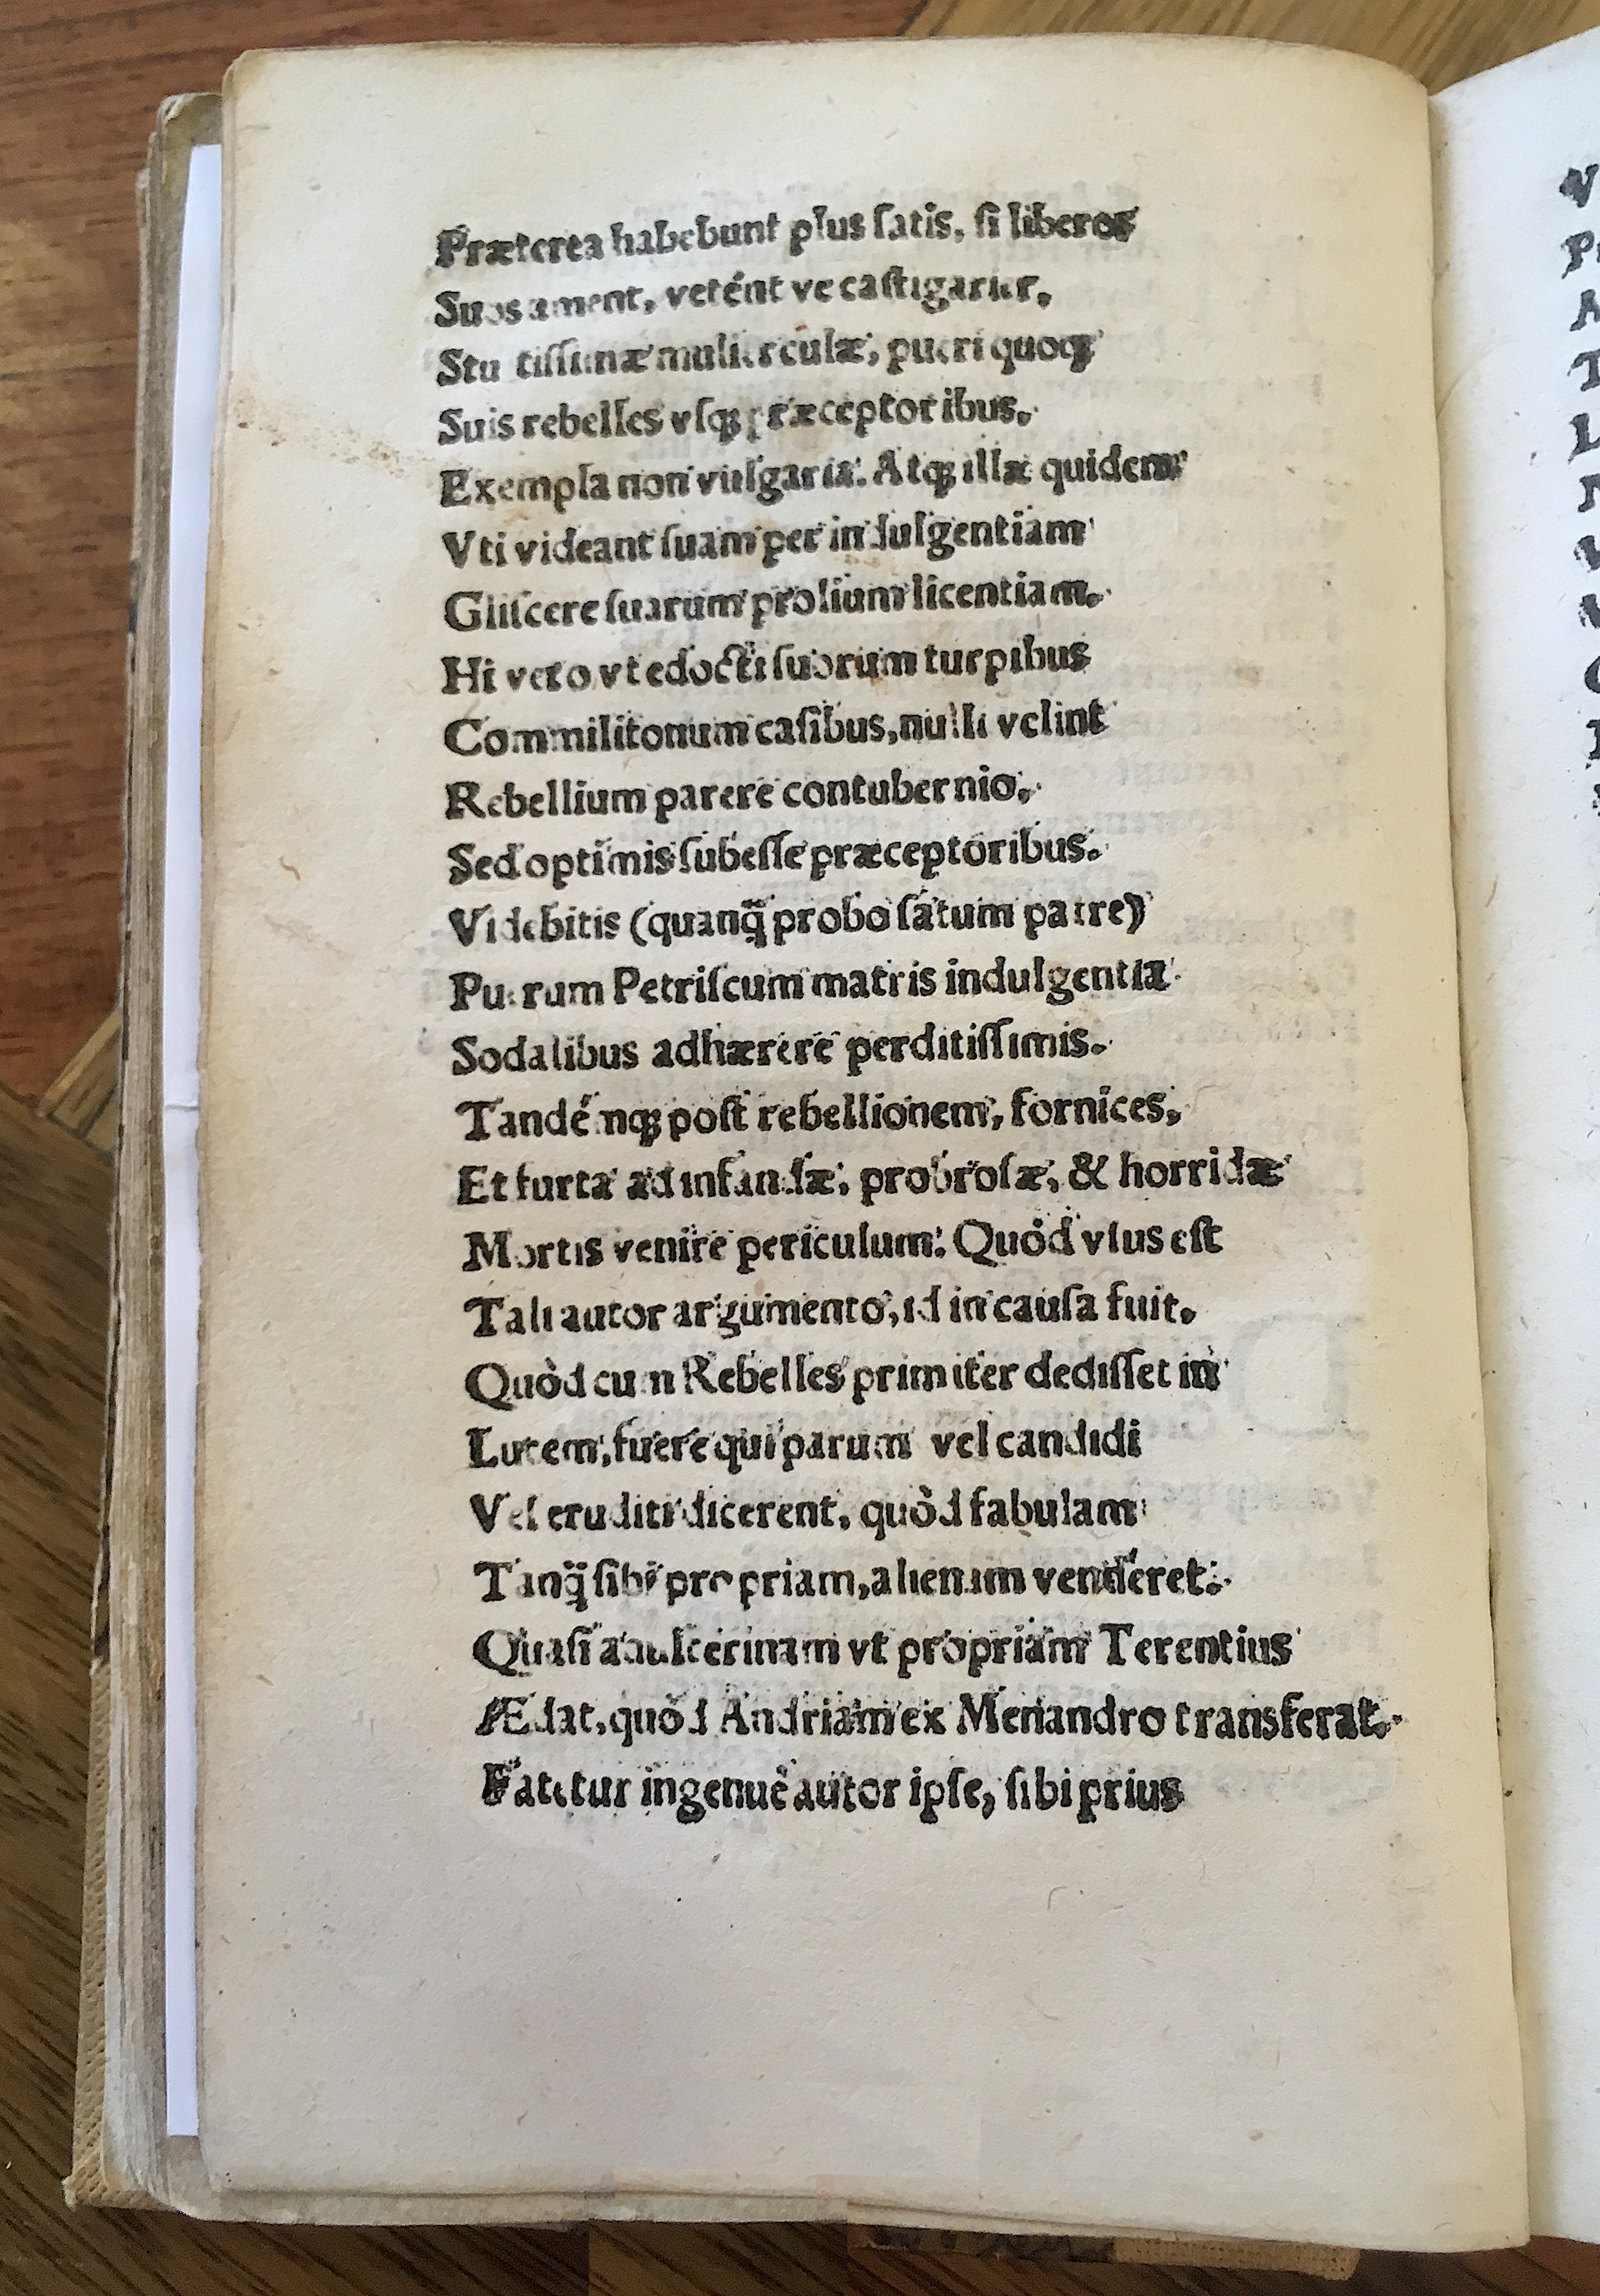 Præterea habebunt plus ſatis, ſi liberos
Suos ament, vetént ve caſtigarier,
Stultiſſimæ mulierculæ, pueri quoqꝫ
Suis rebelles vſqꝫ præceptoribus.
Exempla non vulgaria. Atqꝫ illæ quidem
Vti videant ſuam per indulgentiam
Gliſcere ſuarum prolium licentiam.
Hi vero vt edocti ſuorum turpibus
Commilitonum caſibus, nulli velint
Rebellium parere contubernio.
Sed optimis ſubeſſe præceptoribus.
Videbitis (quanq̈ probo ſatum patre)
Puerum Petriſcum matris indulgentia
Sodalibus adhærere perditiſſimis.
Tandémqꝫ poſt rebellionem, fornices,
Et furta ad infandæ, probroſæ, & horridæ
Mortis venire periculum: Quòd vſus eſt
Tali autor argumento, id in cauſa fuit.
Quòd cum Rebelles primiter dediſſet in
Lucem, fuere qui parum vel candidi
Vel eruditi dicerent, quòd fabulam
Tanq̈ ſibi propriam, alienam venderet.
Quaſi adulterinam vt propriam Terentius
Ædat, quòd Andriam ex Menandro transferat.
Fatetur ingenuè autor ipſe, ſibi prius